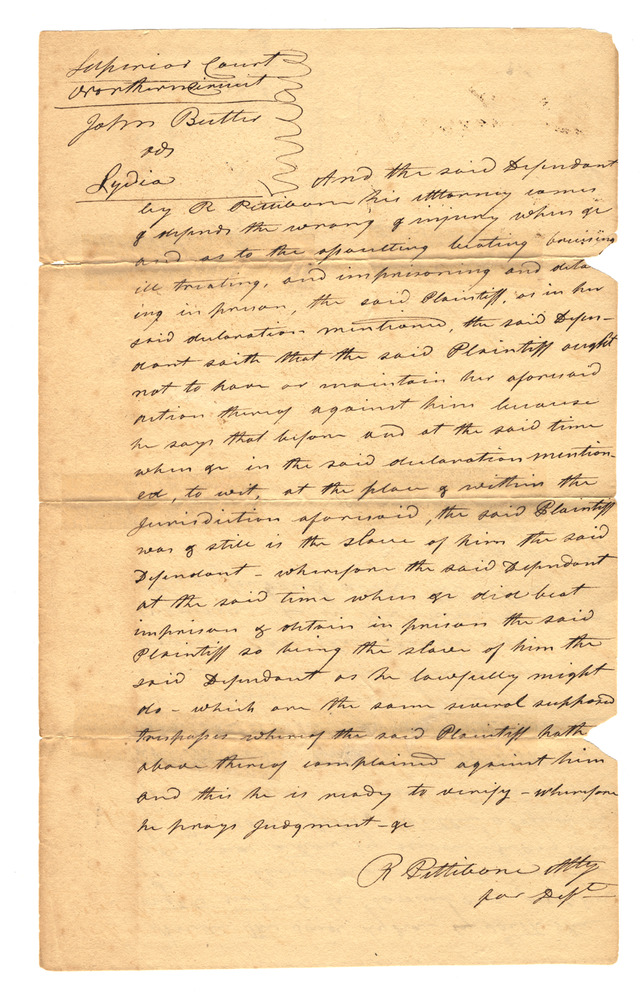 Superior Court
Northern Circuit
John Butter
ads
Lydia
And the said Defendant
by R Pettibone his Attorney comes
& defends the wrong & injury when &c
and as to the assaulting beating bruising
ill treating, and imprisoning and detain
ing in prison, the said Plaintiff, as in her
said declaration mentioned, the said Defen-
dant saith that the said Plaintiff ought
not to have or maintain her aforesaid
action thereof against him because
he says that before and at the said time
when &c in the said declaration mention-
ed, to wit, at the place & within the
Jurisdiction aforesaid, the said Plaintiff
was & still is the slave of him the said
Defendant - wherefore the said Defendant
at the said time when &c did beat
imprison & detain in prison the said
Plaintiff so being the slave of him the
said Defendant as he lawfully might
do - which are the same several supposed
trespasses whereof the said Plaintiff hath
above thereof complained against him
and this he is ready to verify - wherefore
he prays Judgment - &c
R Pettibone Atty
for Deft